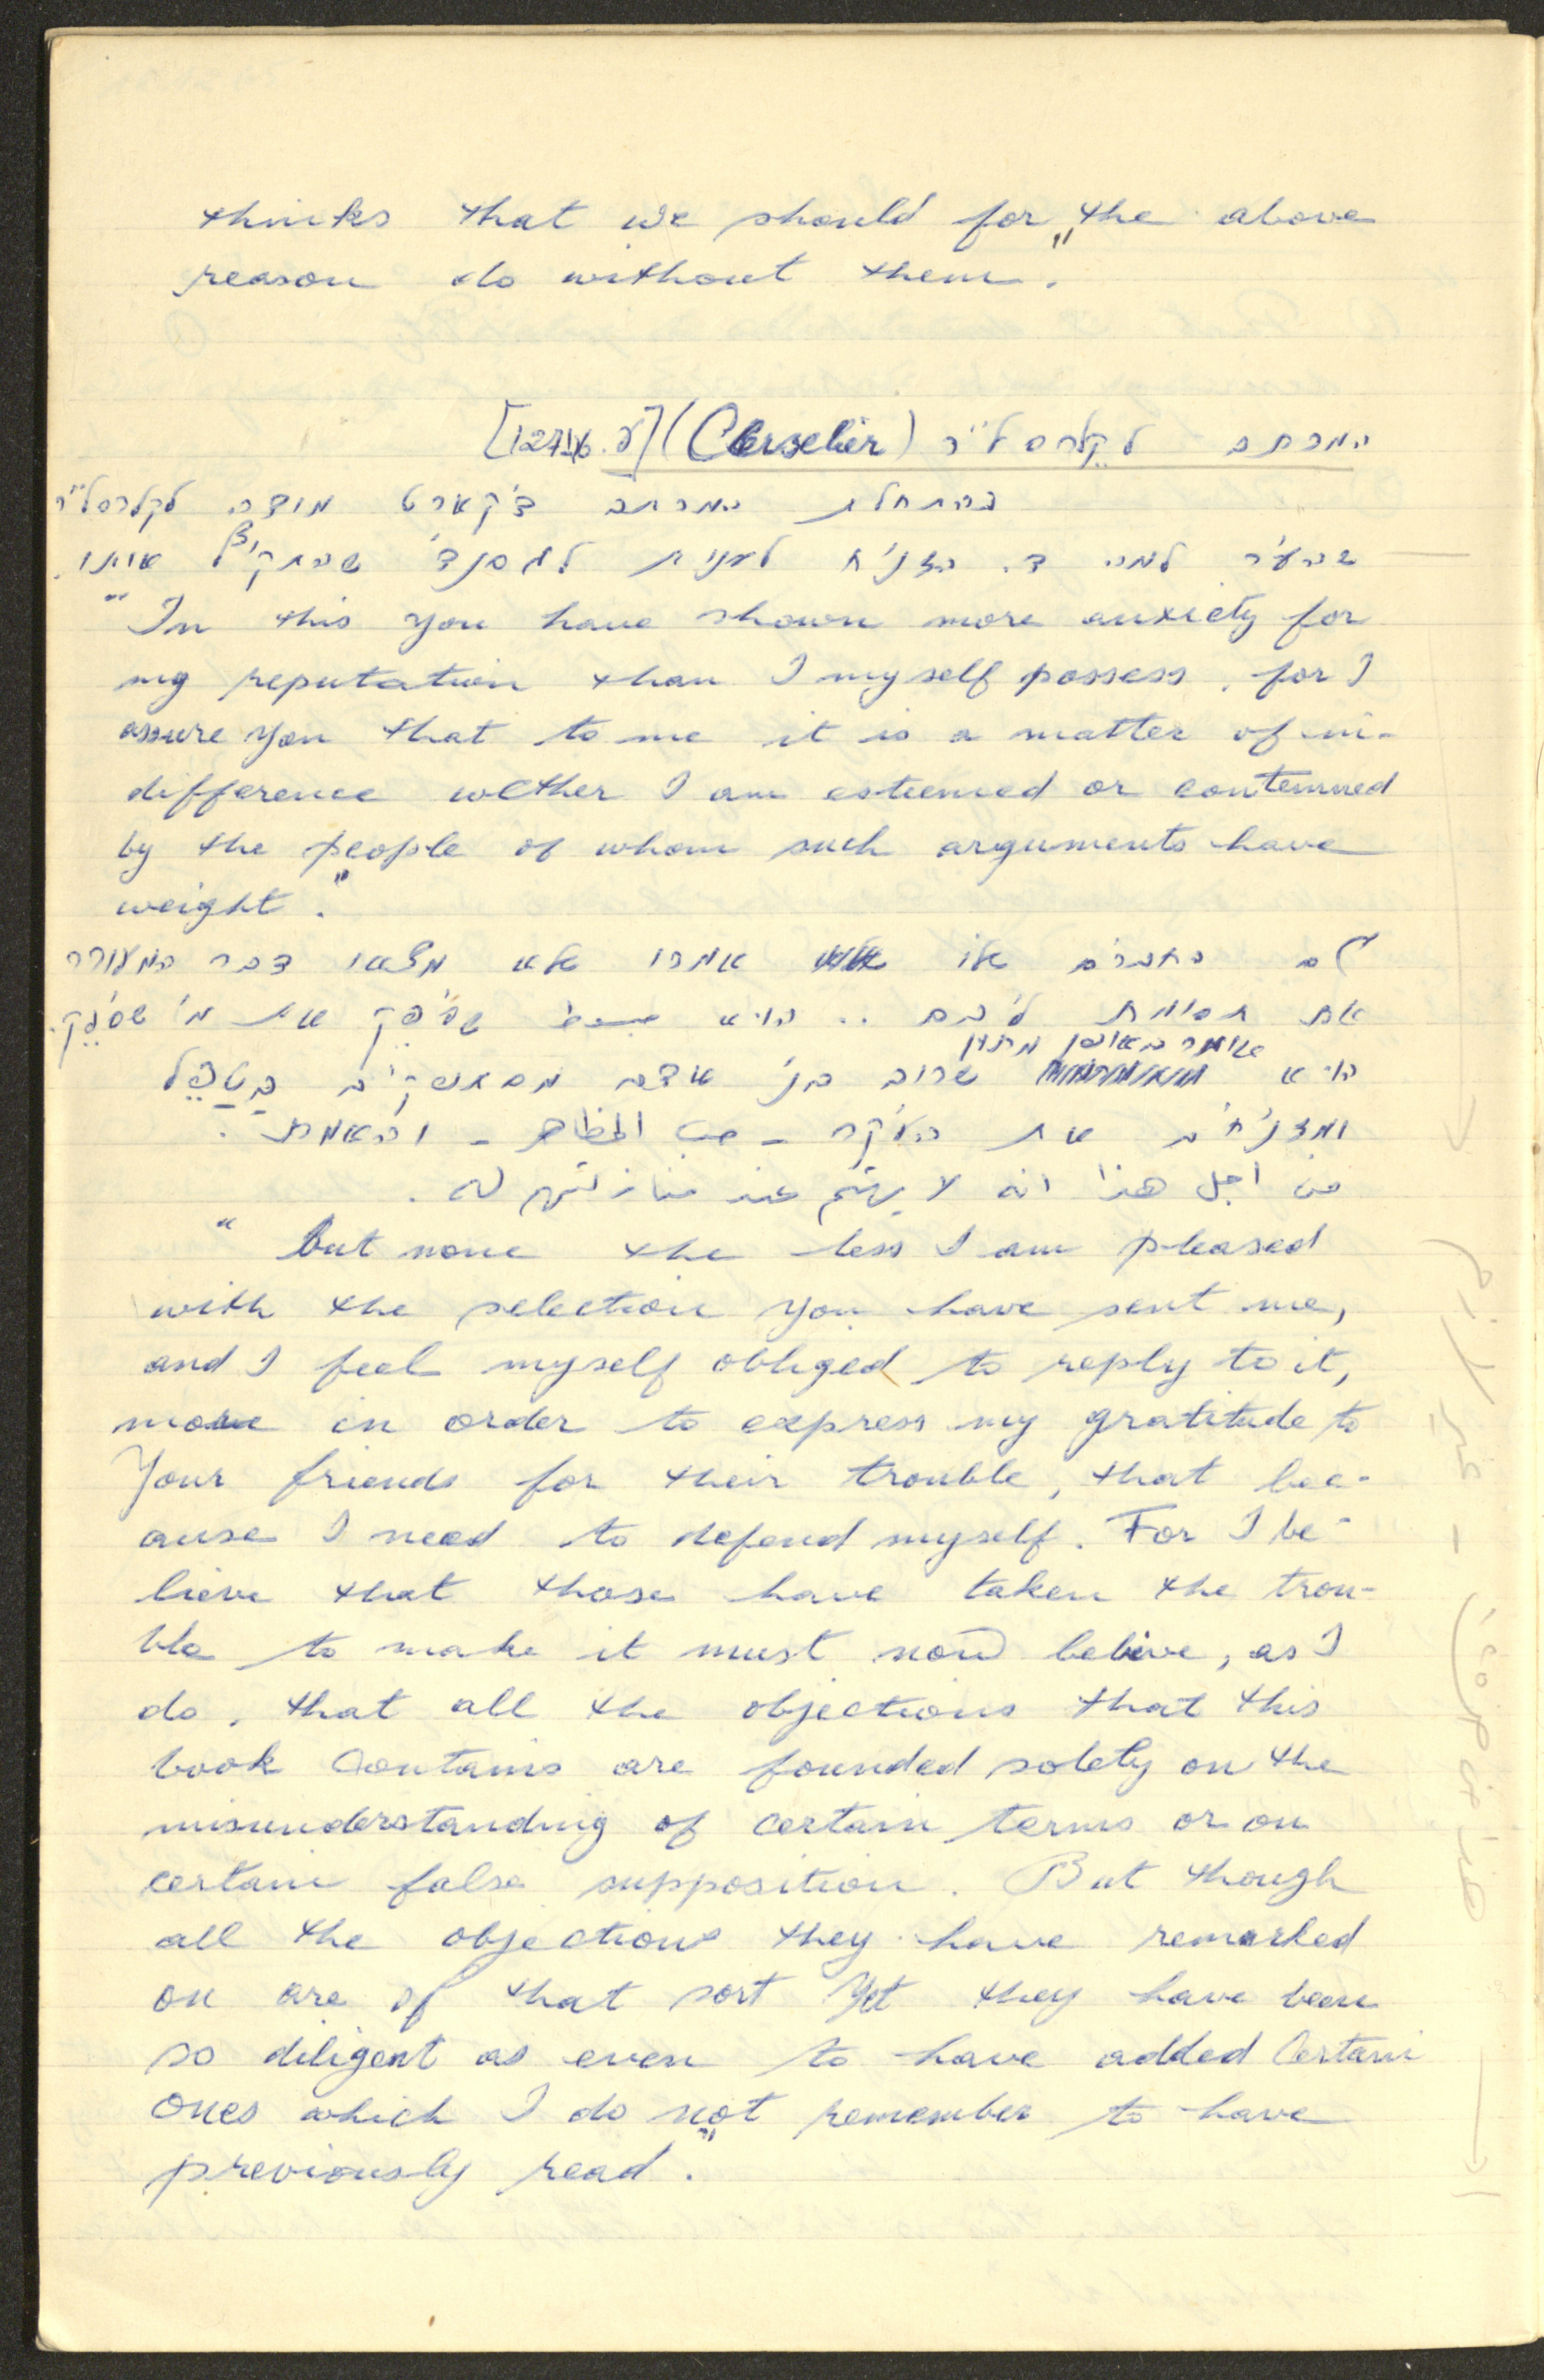 thinks that we should for the above
reason do without them."
המכתב לקלרסליר (Clerselier) [127 .ע]
בהתחלת המכתב דיקארט מודה לקלרסליר
שהעיר למה ד. הצניח לענות לגסנדי שהתקיף אותו.
"In this you have shown more anxiety for
my reputation than I myself possess, for I
assure you that to me it is a matter of in-
difference wether I am esteemed or contemned
by the people of whom such arguments have
weight."
גם החברים שלו אמרו שלא מצאו דבר המעורר
את תשומת לבם .. הוא שיפק את מי שסיפק.
אומר באופן מתון
הוא שרוב בני אדם מסתפקים בטפל
ומזניחים את העיקר - حب المظاهر - והאמת.
من اجل هذا انه لا يهتم عند منازلتهم له.
"But none the less I am pleased
with the selection you have sent me,
and I feel myself obliged to reply to it,
more in order to express my gratitude to
Your friends for their trouble, that bec-
ause I need to defend myself. For I be-
lieve that those have taken the trou-
ble to make it must now belive, as I
do, that all the objections that this
book Contains are founded solely on the
misunderstanding of certain terms or on
certain false supposition. But though
all the objections they have remarked
on are of that sort Yet they have been
so diligent as even to have added Certain
Ones which I do not remember to have
previously read."